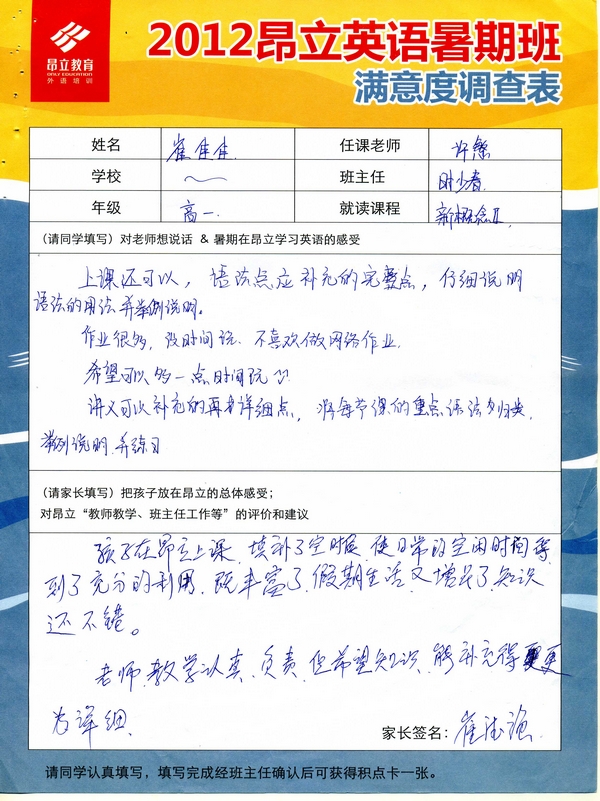 昂立教育
ONLY EDUCATION
外语培训
2012昂立英语暑期班
满意度调查表
姓名 崔佳佳 任课老师 许慜
学校 ~ 班主任 时少春
年级 高一. 就读课程 新概念II.
(请同学填写) 对老师想说话 & 暑期在昂立学习英语的感受
上课还可以, 语法点应补充的完整点, 仔细说明
语法的用法并举例说明。
作业很多, 没时间玩. 不喜欢做网络作业.
希望可以多一点时间玩
讲义可以补充的再多详细点, 将每节课的重点语法列归类,
举例说明并练习
(请家长填写) 把孩子放在昂立的总体感受;
对昂立“教师教学、班主任工作等”的评价和建议
孩子在昂立上课, 填补了空时段 使日常的空闲时间得
到了充分的利用, 既丰富了假期生活又增长了知识
还不错。
老师教学认真、负责, 但希望知识能补充得更
为详细.
家长签名: 崔德强
请同学认真填写,填写完成经班主任确认后可获得积点卡一张。